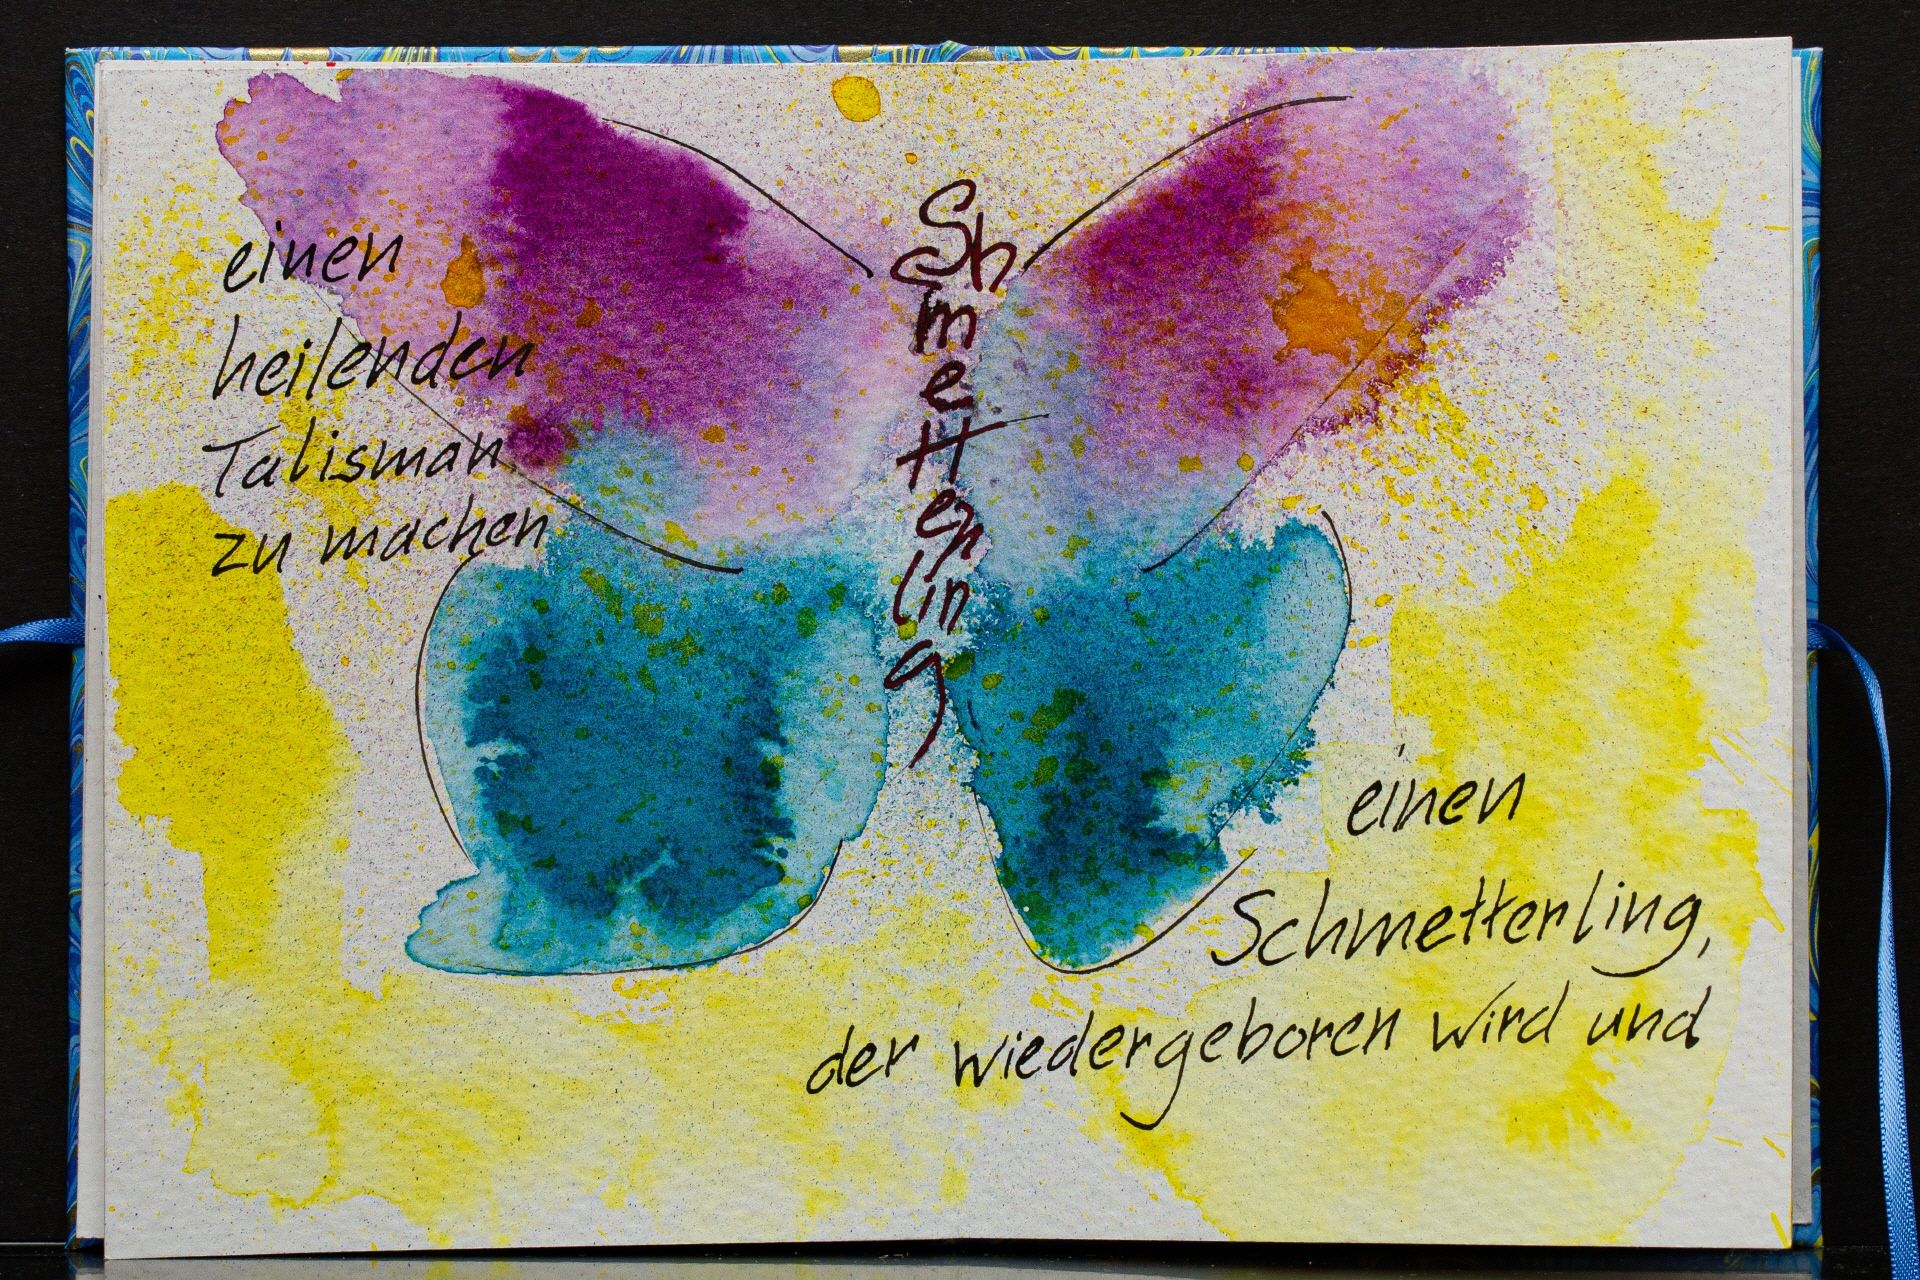 einen
heilenden
Talisman
zu machen
Sch
m
e
tt
er
lin
g
einen
Schmetterling,
der wiedergeboren wird und